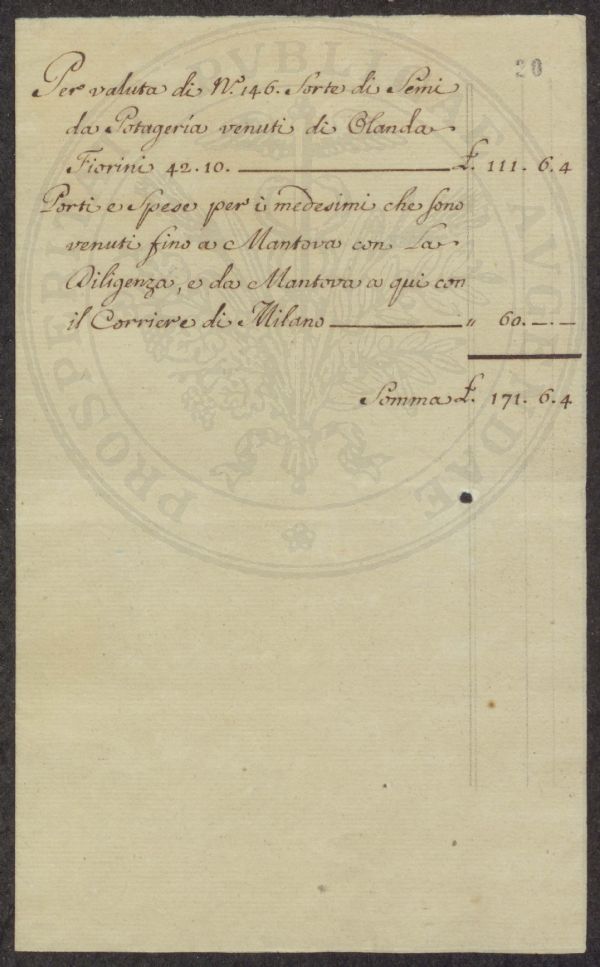 20
Per valuta di N.º 146. Sorte di Semi
da Potagería venuti di Olanda
Fiorini 42.10. £. 111. 6. 4
Porti e Spese per i medesimi che sono
venuti fino a Mantova con La
Diligenza, e da Mantova a qui con
il Corriere di Milano " 60. — . —
Somma £. 171. 6. 4